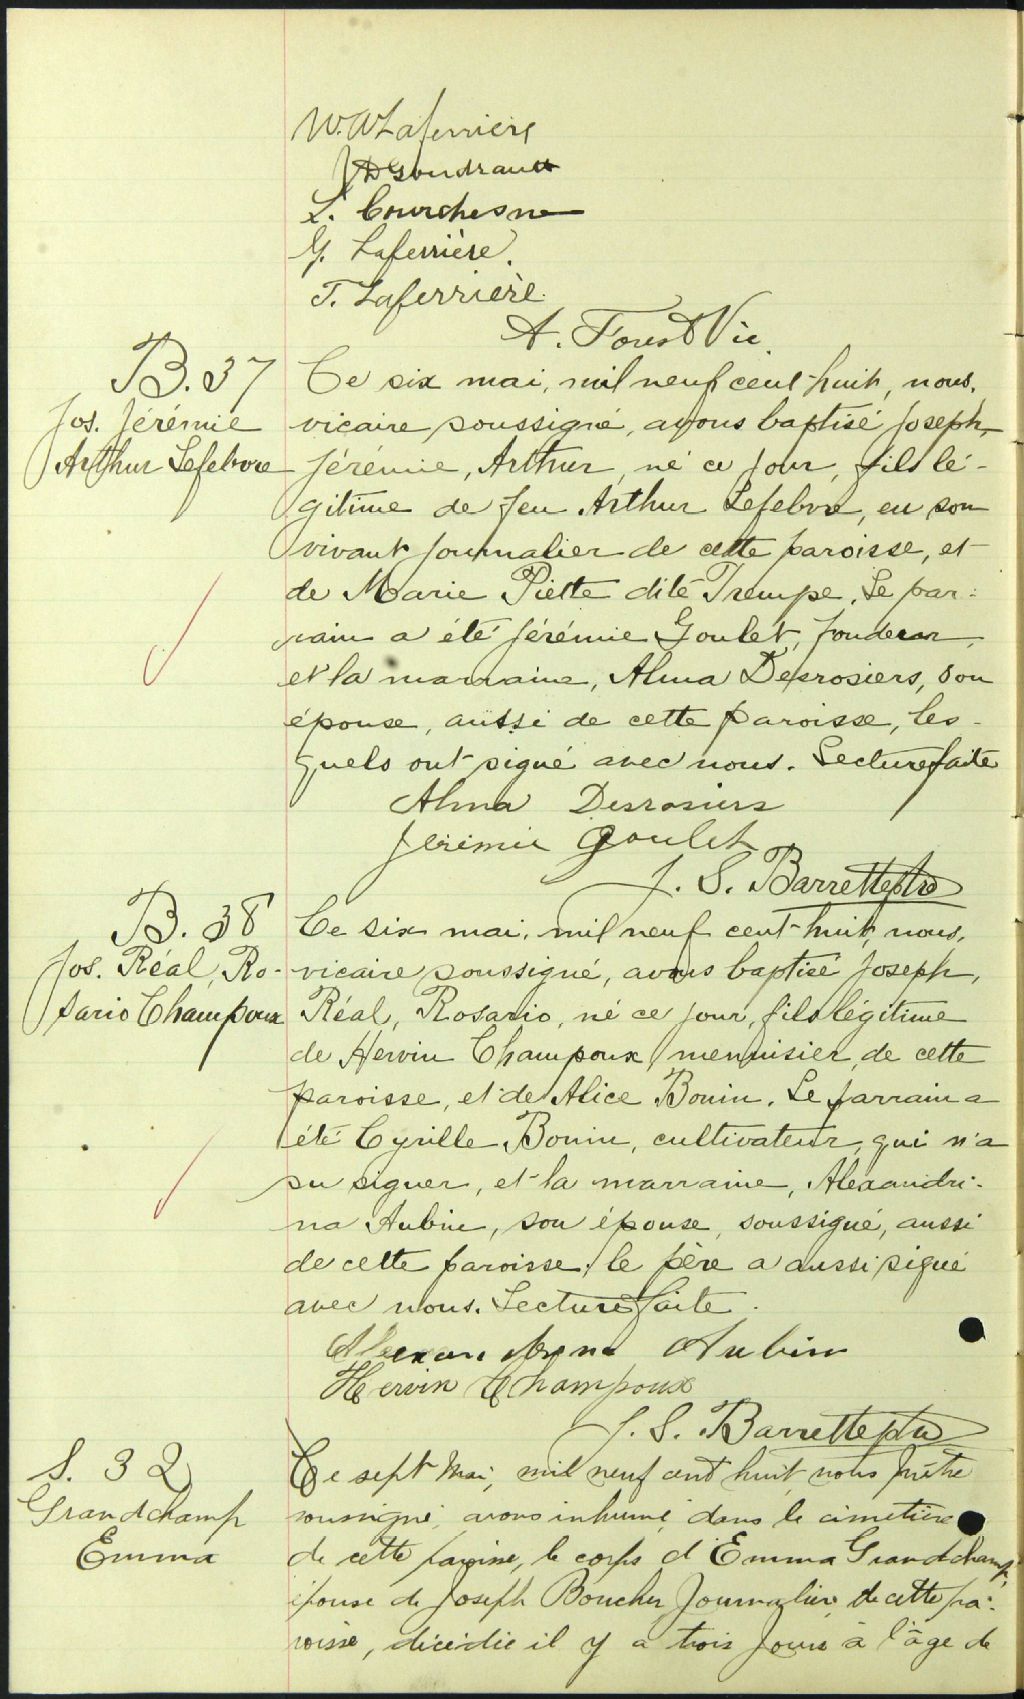 W. W Laferrière
J D Gendrault
L. Courchesne
G. Laferrière.
T. Laferrière.
A. Forest Vic
B. 37
Jos. Jérémie
Arthur Lefebvre
Ce six mai, mil neuf cent huit, nous,
vicaire soussigné, avons baptisé Joseph,
Jérémie, Arthur, né ce jour, fils lé-
gitime de feu Arthur Lefebvre, en son
vivant journalier de cette paroisse, et
de Marie Piette dite Trempe. Le par-
rain a été Jérémie Goulet, fondeur,
et la marraine, Alma Desrosiers, son
épouse, aussi de cette paroisse, les-
quels ont signé avec nous. Lecture faite
Alma Desrosiers
Jérémie Goulet
J. S. Barrette ptre
B. 38
Jos. Réal, Ro-
sario Champoux
Ce six mai, mil neuf cent huit, nous,
vicaire soussigné, avons baptisé Joseph,
Réal, Rosario, né ce jour, fils légitime
de Hervin Champoux, menuisier, de cette
paroisse, et de Alice Bonin. Le parrain a
été Cyrille Bonin, cultivateur, qui n'a
su signer, et la marraine, Alexandri-
na Aubin, son épouse, soussigné, aussi
de cette paroisse; le père a aussi signé
avec nous. Lecture faite.
Alexandrina Aubin
Hervin Champoux
J. S. Barrette ptre
S. 32
Grandchamp
Emma
Ce sept Mai, mil neuf cent huit, nous prêtre
soussigné, avons inhumé dans le cimetière
de cette paroisse, le corps d'Emma Grandchamp
épouse de Joseph Boucher, Journalier, de cette pa-
roisse, décédée il y a trois jours à l'âge de